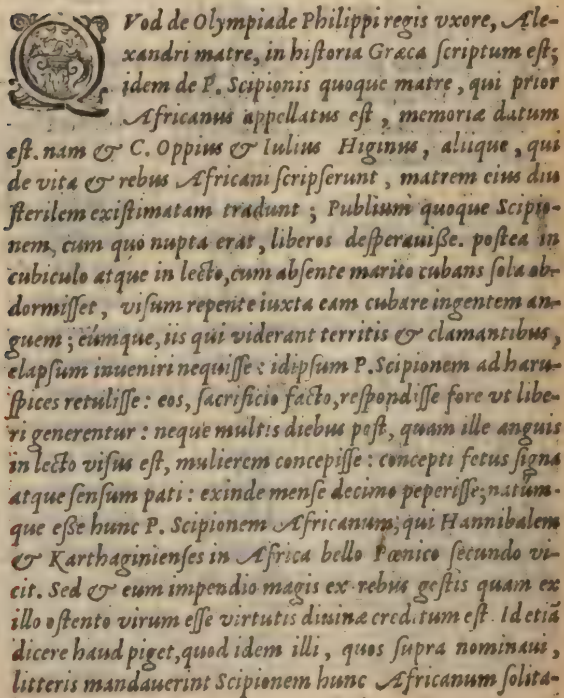 QVod de Olympiade Philippi regis vxore, Ale-
xandri matre, in historia Græca scriptum est;
idem de P. Scipionis quoque matre, qui prior
Africanus appellatus est, memoriæ datum
est. nam & C. Oppius & Iulius Higinus, aliique, qui
de vita & rebus Africani scripserunt, matrem eius diu
sterilem existimatam tradunt; Publium quoque Scipio-
nem, cum quo nupta erat, liberos desperauiße. postea in
cubiculo atque in lecto, cum absente marito cubans sola ob-
dormisset, visum repente iuxta eam cubare ingentem an-
guem; eúmque, iis qui viderant territis & clamantibus,
elapsum inueniri nequisse: idipsum P. Scipionem ad haru-
spices retulisse: eos, sacrificio facto, respondisse fore vt libe-
ri generentur: neque multis diebus post, quam ille anguis
in lecto visus est, mulierem concepisse: concepti fetus signa
atque sensum pati: exinde mense decimo peperisse; natum-
que eße hunc P. Scipionem Africanum; qui Hannibalem
& Karthaginienses in Africa bello Pœnico secundo vi-
cit. Sed & eum impendio magis ex rebus gestis quam ex
illo ostento virum esse virtutis diuinæ creditum est. Id etiã
dicere haud piget, quod idem illi, quos supra nominaui,
litteris mandauerint Scipionem hunc Africanum solita-